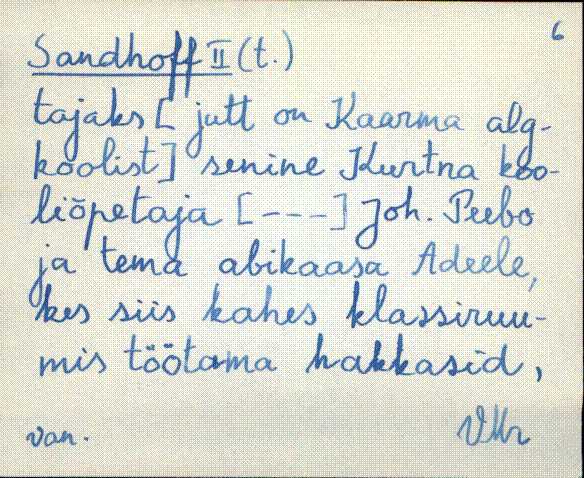 6
Sandhoff II (t.)
tajaks [ jutt on Kaarma alg-
koolist] senine Kurtna koo-
liõpetaja [---] Joh. Peebo
ja tema abikaasa Adeele,
kes siis kahes klassiruu-
mis töötama hakkasid,
van.